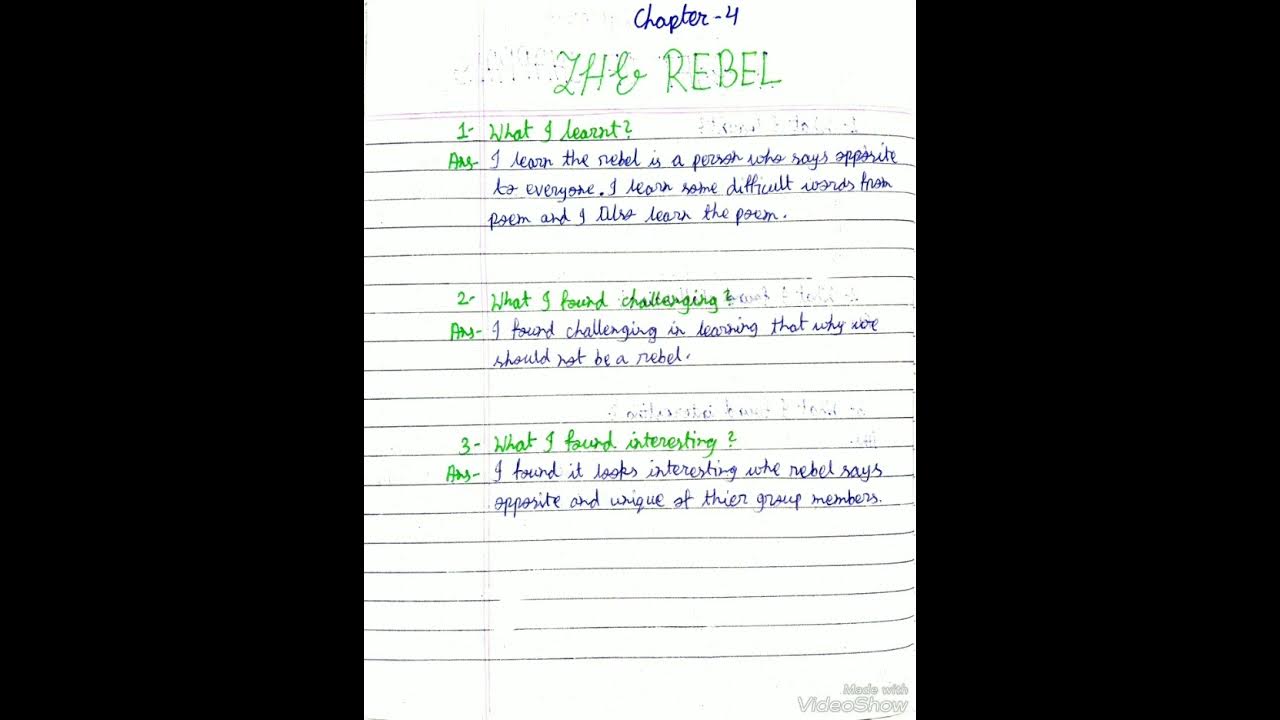 Chapter-4
THE REBEL
1- What I learnt?
Ans- I learn the rebel is a person who says opposite
to everyone. I learn some difficult words from
poem and I Also learn the poem.
2- What I found challenging?
Ans- I found challenging in learning that why we
should not be a rebel.
3- What I found interesting?
Ans- I found it looks interesting whe rebel says
opposite and unique of thier group members.
Made with
VideoShow